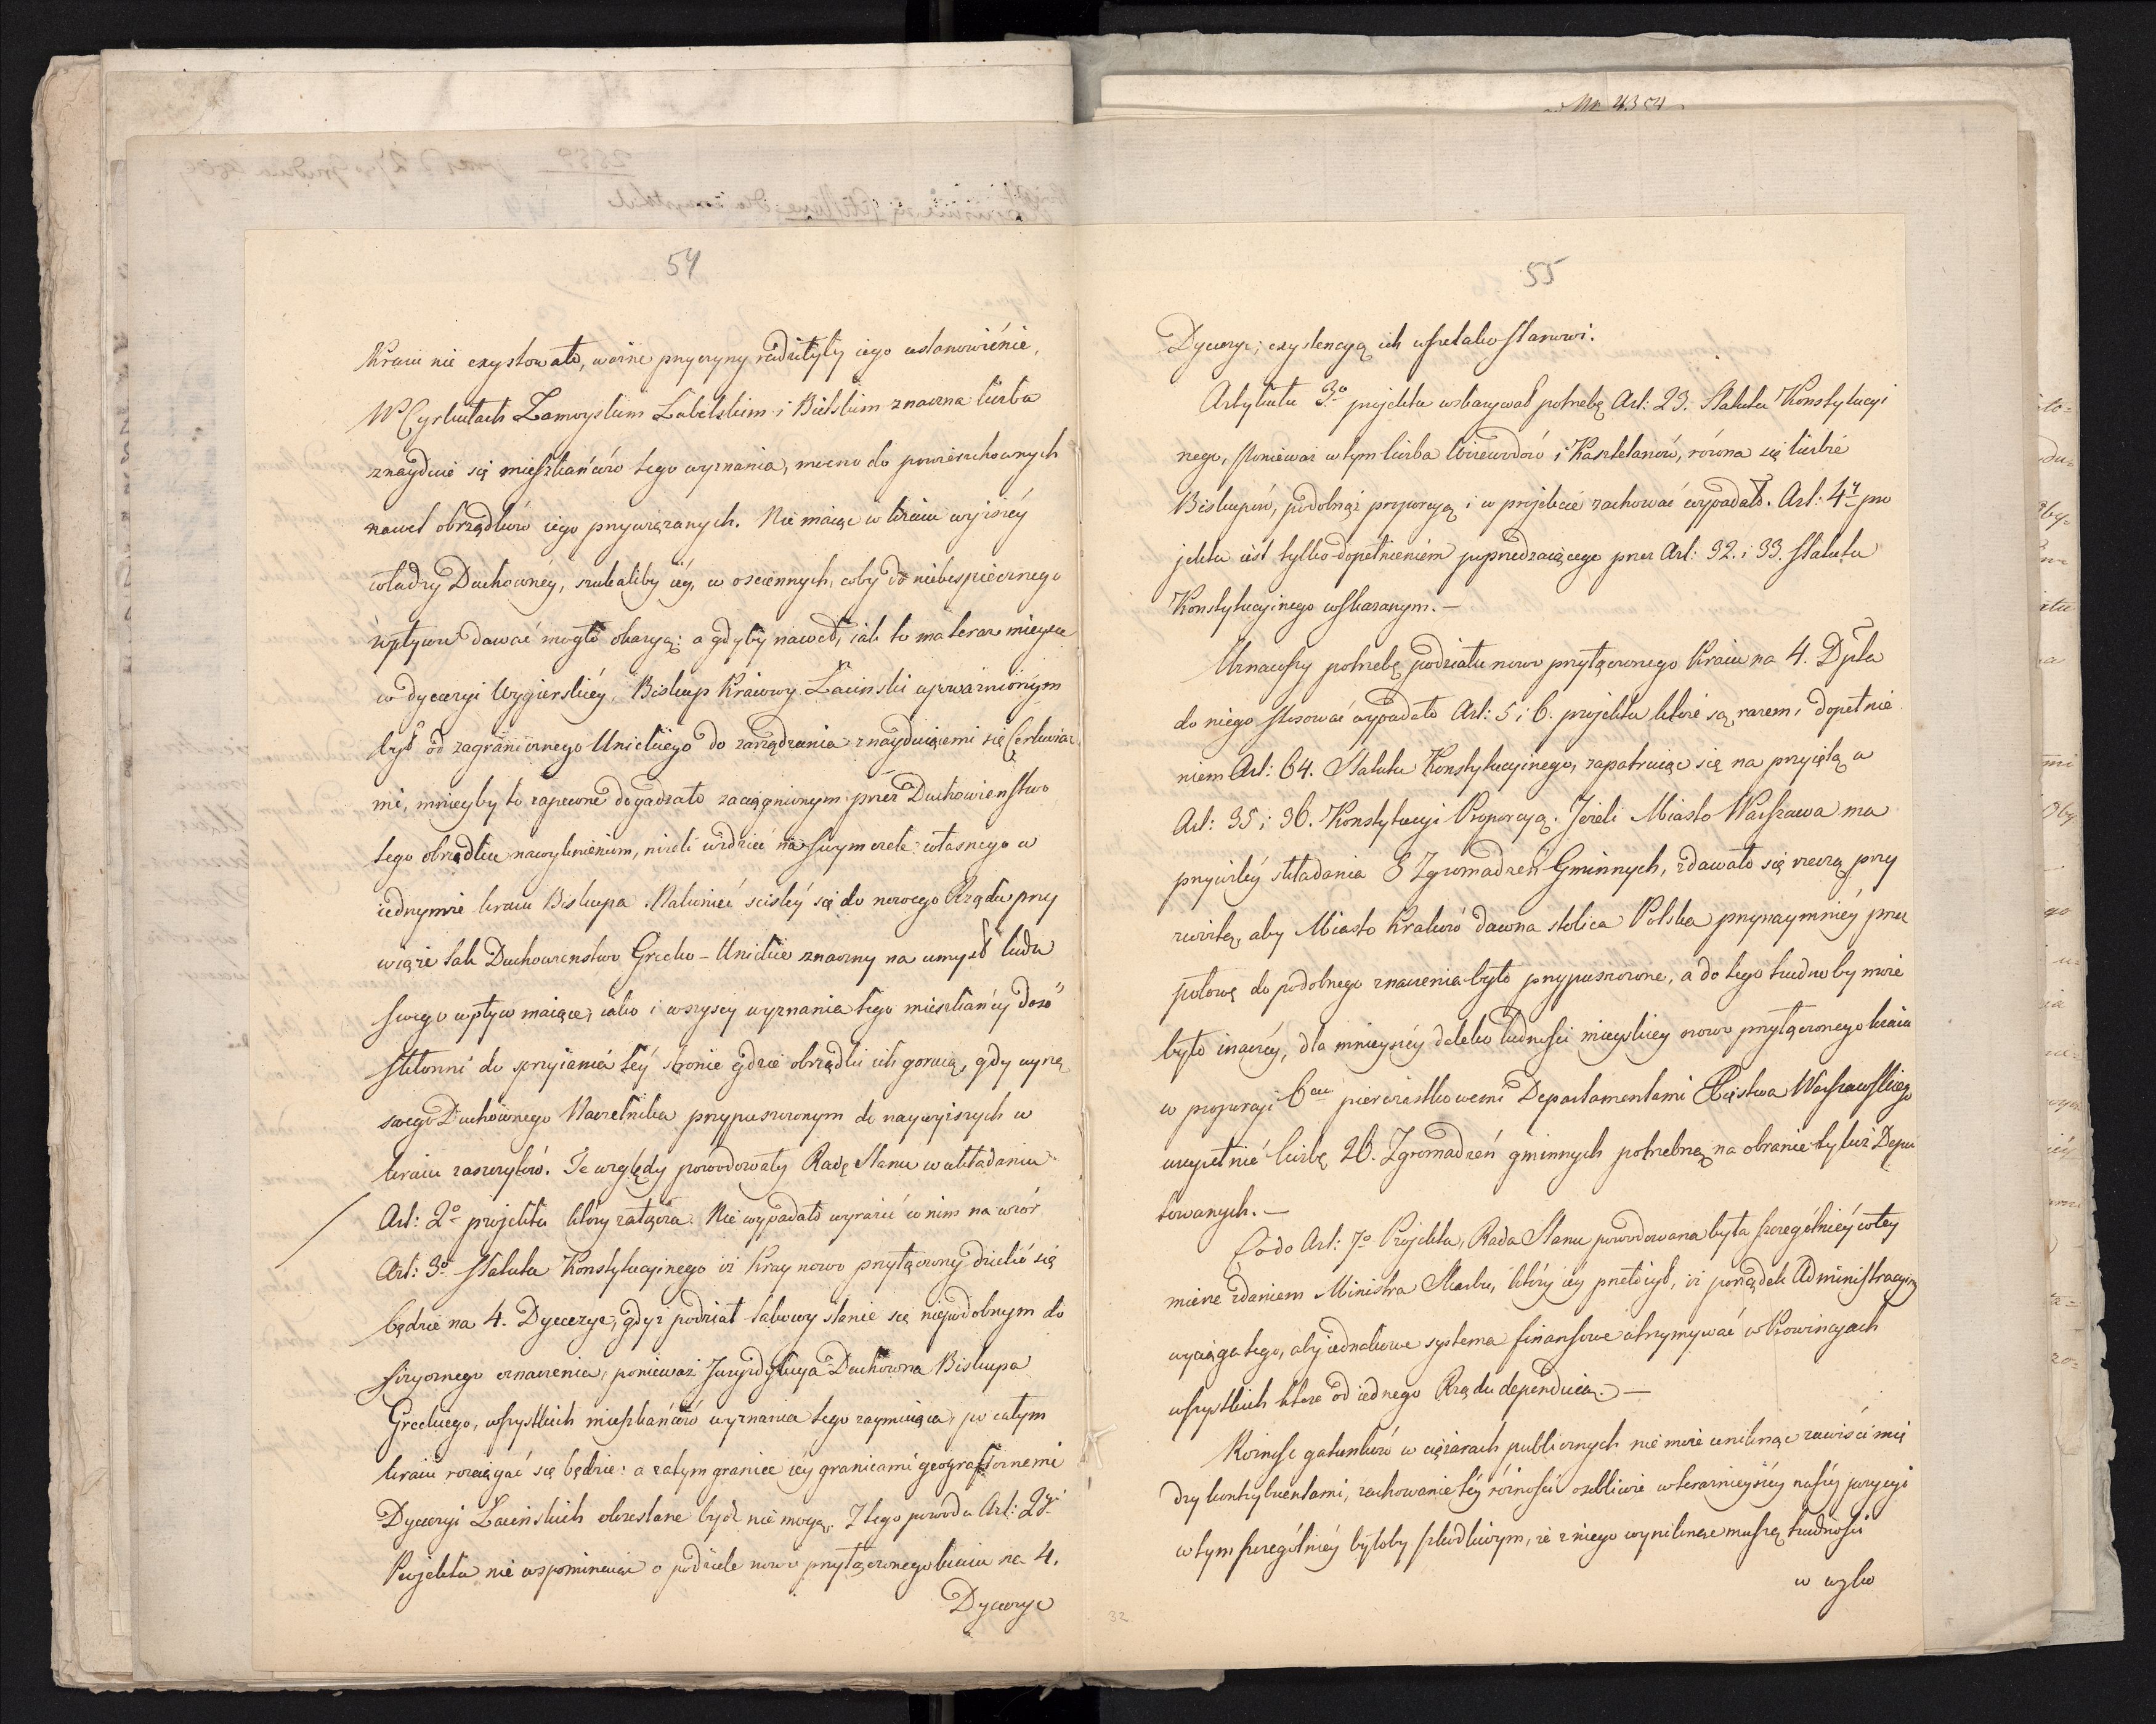 Nr. 4354
54
Kraiu nie exystowało, ważne przyczyny radziłyby iego ustanowienie,
W Cyrkułach Zamoyskim Lubelskim i Bielskim znaczna liczba
znayduie się mieszkańców tego wyznania, mocno do powierzchownych
nawet obrządków iego przywiązanych. Nie maiąc w kraiu wyższey
władzy Duchownéy, szukaliby iéy, w ościennych, coby do niebespiecznego
wpływu dawać mogło okazyą: a gdyby nawet, iak to ma teraz mieysce
w dyecezyi Wygierskiéy, Biskup Kraiowy Łacinski upoważnionym
był od zagranicznego Unickiego do zarządzania znayduiącemi się Cerkwia
mi, mnieyby to zapewne dogadzało zaciągnionym przez Duchowieństwo
tego obrządku nawyknieniom, niżeli widzieć na swym czele własnego w
iednymże kraiu Biskupa. Nakoniec sciśléy się do nowego Rządu przy
wiąże tak Duchowienstwo Grecko-Unickie znaczny na umysł ludu
swego wpływ maiące, iako i wszyscy wyznania tego mieszkańcy dość
skłonni do sprzyiania téy stronie gdzie obrządki ich goruią, gdy uyrzą
swego Duchownego Naczelnika przypuszczonym do naywyższych w
kraiu zaszczytów. Te względy powodowały Radę Stanu w układaniu
Art: 2º projektu który załącza. Nie wypadało wyrazić w nim na wzór
Art: 3º Statutu Konstytucyinego iż Kray nowo przyłączony dzielić się
będzie na 4. Dyecezye, gdyż podział takowy stanie się niepodobnym do
fizycznego oznaczenia, ponieważ Juryzdykcya Duchowna Biskupa
Greckiego, wszystkich mieszkańców wyznania tego zaymuiąca, po całym
kraiu rozciągać się będzie: a zatym granice iéy granicami geograficznemi
Dyecezyi Łacińskich okreslane być nie mogą. Z tego powodu Art: 2gi
Projektu nie wspominaiąc o podziale nowo przyłączonego kraiu na 4.
Dyecezye
55
Dyecezye; exystencyą ich wszelako stanowi.
Artykułu 3º projektu wskazywał potrzebę Art: 23. Statutu Konstytucyi
nego, Ponieważ w tym liczba Woiewodów i Kasztelanów, równa się liczbie
Biskupów, podobnąż proporcyą i w projekcie zachować wypadało. Art: 4y pro
jektu iest tylko dopełnieniem poprzedzaiącego przez Art: 32. i 33. Statutu
Konstytucyinego wskazanym. —
Uznawszy potrzebę podziału nowo przyłączonego Kraiu na 4. Dpta
do niego stosować wypadało Art: 5 i 6. projektu które są razem, dopełnie
niem Art: 64. Statutu Konstytucyinego, zapatruiąc się na przyiętą w
Art: 35 i 36. Konstytucyi Proporcyą. Jeżeli Miasto Warszawa ma
przywiléy składania 8 Zgromadzeń Gminnych, zdawało się rzeczą przy
zwoitą, aby Miasto Kraków dawna stolica Polska przynaymniéy przez
połowę do podobnego znaczenia było przypuszczone, a do tego trudno by może
było inaczéy, dla mnieyszéy daleko ludności mieyskiey nowo przyłączonego kraiu
w proporcyi 6ciu pierwiastkowemi Departamentami Xięstwa Warszawskiego
uzupełnić liczbę 26. Zgromadzeń gminnych potrzebną na obranie tyluż Depu
towanych. —
Co do Art: 7º Projektu, Rada Stanu powodowana była szczególniéy w téy
mierze zdaniem Ministra Skarbu, który iéy przełożył, iż porządek Administracyiny
wyciąga tego, aby iednakowe systema finansowe utrzymywać w Prowincyach
wszystkich które od iednego Rządu dependuią. —
Różność gatunków w ciężarach publicznych nie może uniknąć zawiści mię
dzy kontrybuentami, zachowanie téy różności osobliwie w teraznieyszéy naszéy pozycyi
w tym szczególniéy byłoby szkodliwym, że z niego wyniknąć muszą trudności
w wyko
32